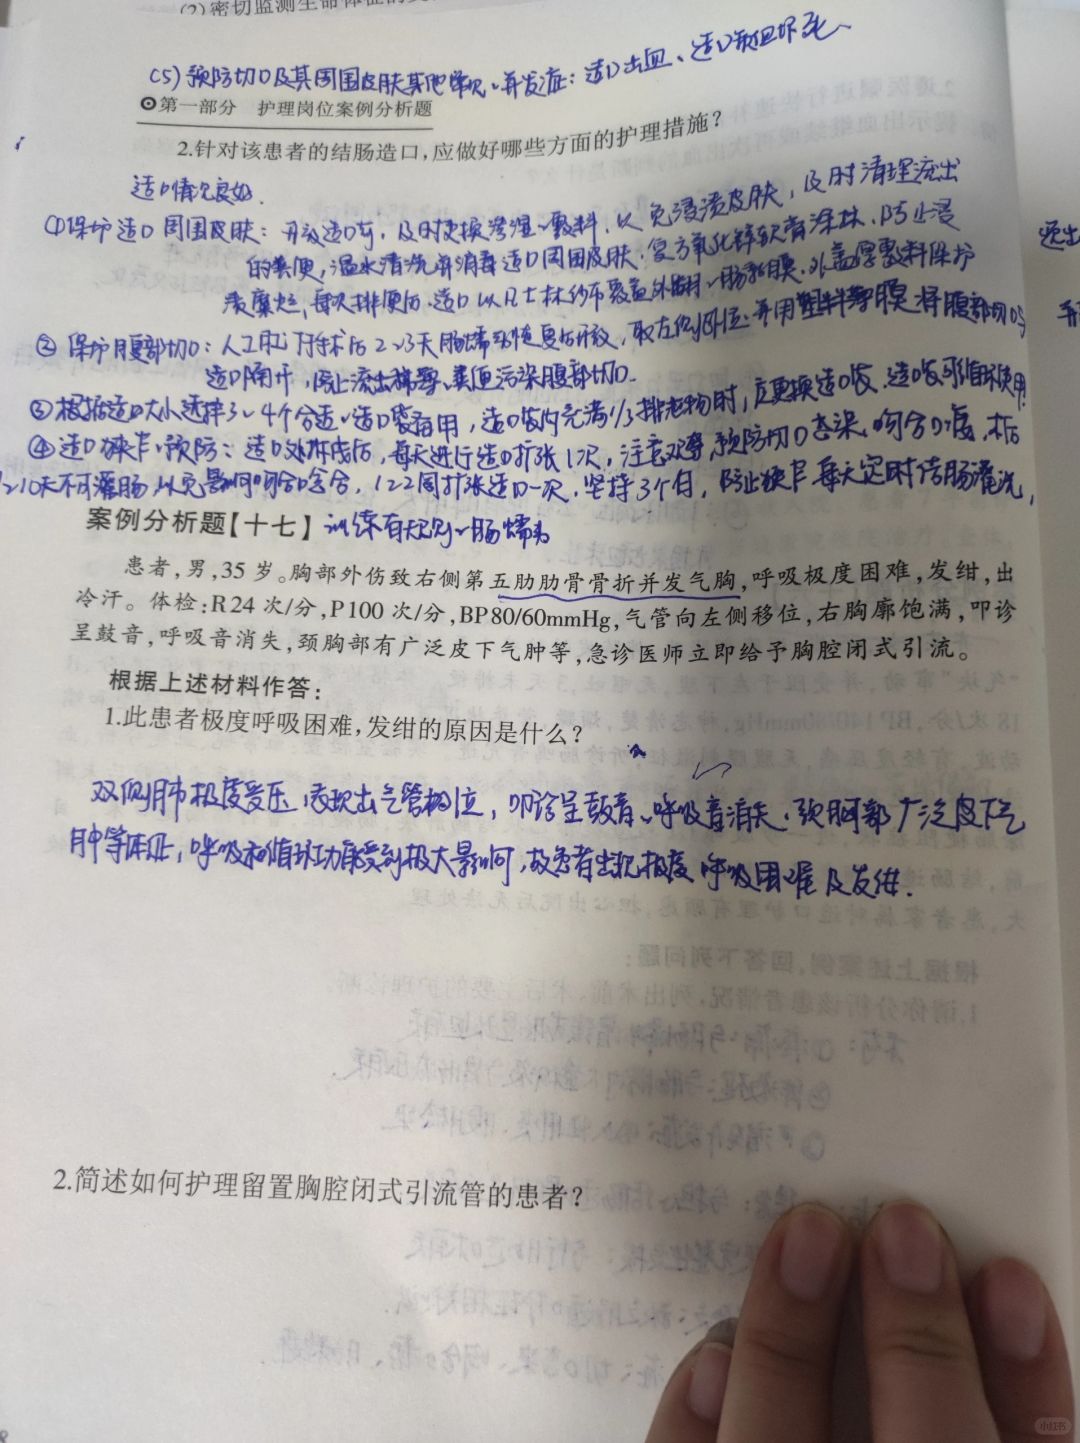 (2)密切监测生命体征的变
(5)预防切口及其周围皮肤其他情况。并发症:造口出血、造口缺血坏死、
第一部分 护理岗位案例分析题
2.针对该患者的结肠造口,应做好哪些方面的护理措施?
造口情况良好.
①保护造口周围皮肤:开放造口时,及时更换渗湿敷料,以免浸渍皮肤,及时清理流出
的粪便,温水清洗并消毒造口周围皮肤.复方氧化锌软膏涂抹.防止浸
渍糜烂,每次排便后.造口以凡士林纱布覆盖外翻肠黏膜.外盖厚敷料保护
②保护腹部切口:人工肛门手术后2~3天肠蠕动恢复后开放,取左侧卧位.并用塑料薄膜将腹部切口与
造口隔开,防止流出稀薄粪便污染腹部切口.
③根据造口大小选择3~4个合适造口袋备用,造口袋内充满1/3排泄物时,应更换造口袋.造口袋可循环使用.
④造口狭窄预防:造口处拆线后,每天进行造口扩张1次,注意观察,预防切口感染.吻合口瘘,术后
7~10天不可灌肠以免影响吻合口愈合,1~2周扩张造口一次.坚持3个月,防止狭窄.每天定时结肠灌洗,
案例分析题【十七】 训练有规则肠蠕动
患者,男,35岁。胸部外伤致右侧第五肋肋骨骨折并发气胸,呼吸极度困难,发绀,出
冷汗。体检:R 24 次/分,P 100 次/分,BP 80/60mmHg,气管向左侧移位,右胸廓饱满,叩诊
呈鼓音,呼吸音消失,颈胸部有广泛皮下气肿等,急诊医师立即给予胸腔闭式引流。
根据上述材料作答:
1.此患者极度呼吸困难,发绀的原因是什么?
双侧肺极度受压.表现出气管移位,叩诊呈鼓音、呼吸音消失.颈胸部广泛皮下气
肿等体征,呼吸和循环功能受到极大影响,故患者出现极度呼吸困难及发绀.
2.简述如何护理留置胸腔闭式引流管的患者?
小红书